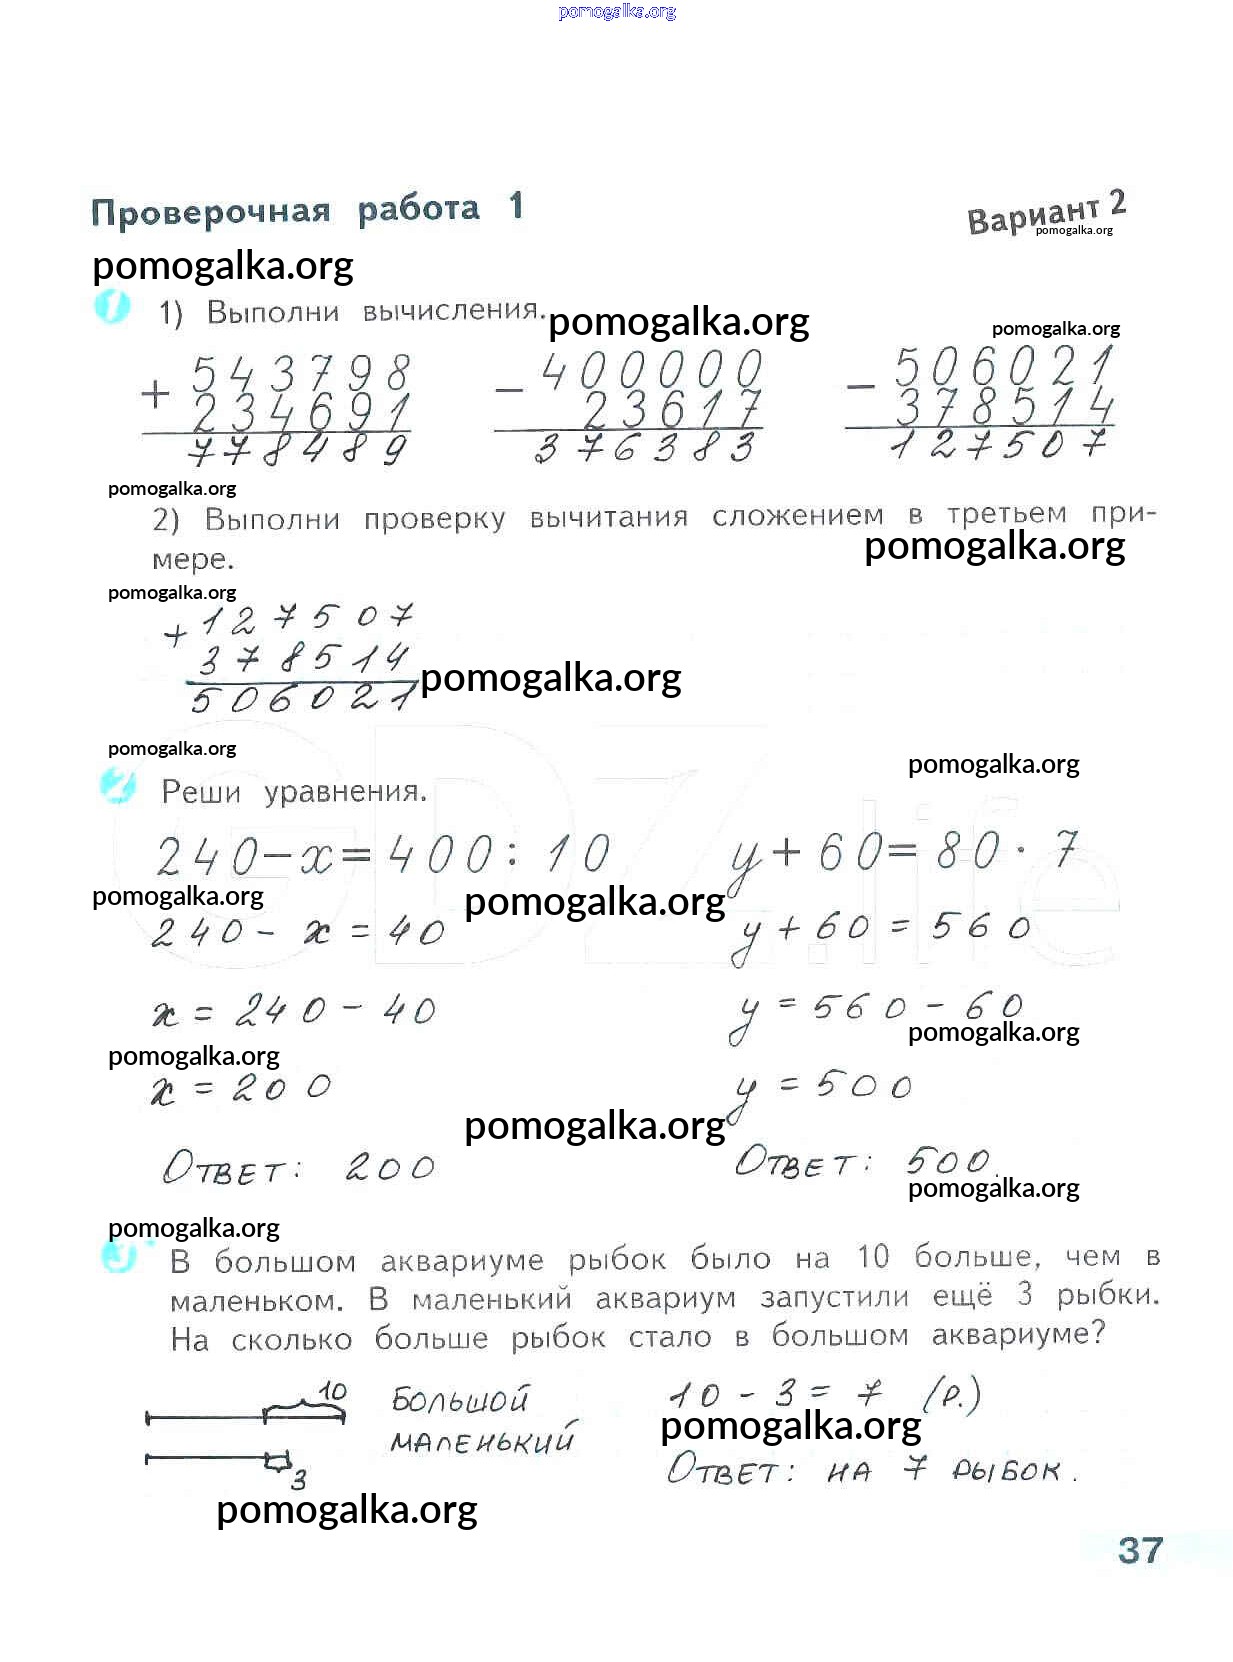 pomogalka.org
Проверочная работа 1
Вариант 2
pomogalka.org
pomogalka.org
1 1) Выполни вычисления.
pomogalka.org
pomogalka.org
+ 543798 - 400000 - 506021
234691 23617 378514
778489 376383 127507
pomogalka.org
2) Выполни проверку вычитания сложением в третьем при-
мере.
pomogalka.org
pomogalka.org
+ 127507
378514
506021
pomogalka.org
pomogalka.org
pomogalka.org
2 Реши уравнения.
240-x=400:10 y+60=80·7
pomogalka.org
pomogalka.org
240 - x = 40 y + 60 = 560
x = 240 - 40 y = 560 - 60
pomogalka.org
pomogalka.org
x = 200 y = 500
pomogalka.org
Ответ: 200 Ответ: 500.
pomogalka.org
pomogalka.org
3 В большом аквариуме рыбок было на 10 больше, чем в
маленьком. В маленький аквариум запустили ещё 3 рыбки.
На сколько больше рыбок стало в большом аквариуме?
10 большой 10 - 3 = 7 (р.)
pomogalka.org
маленький
3 Ответ: на 7 рыбок.
pomogalka.org
37
GDZ.life